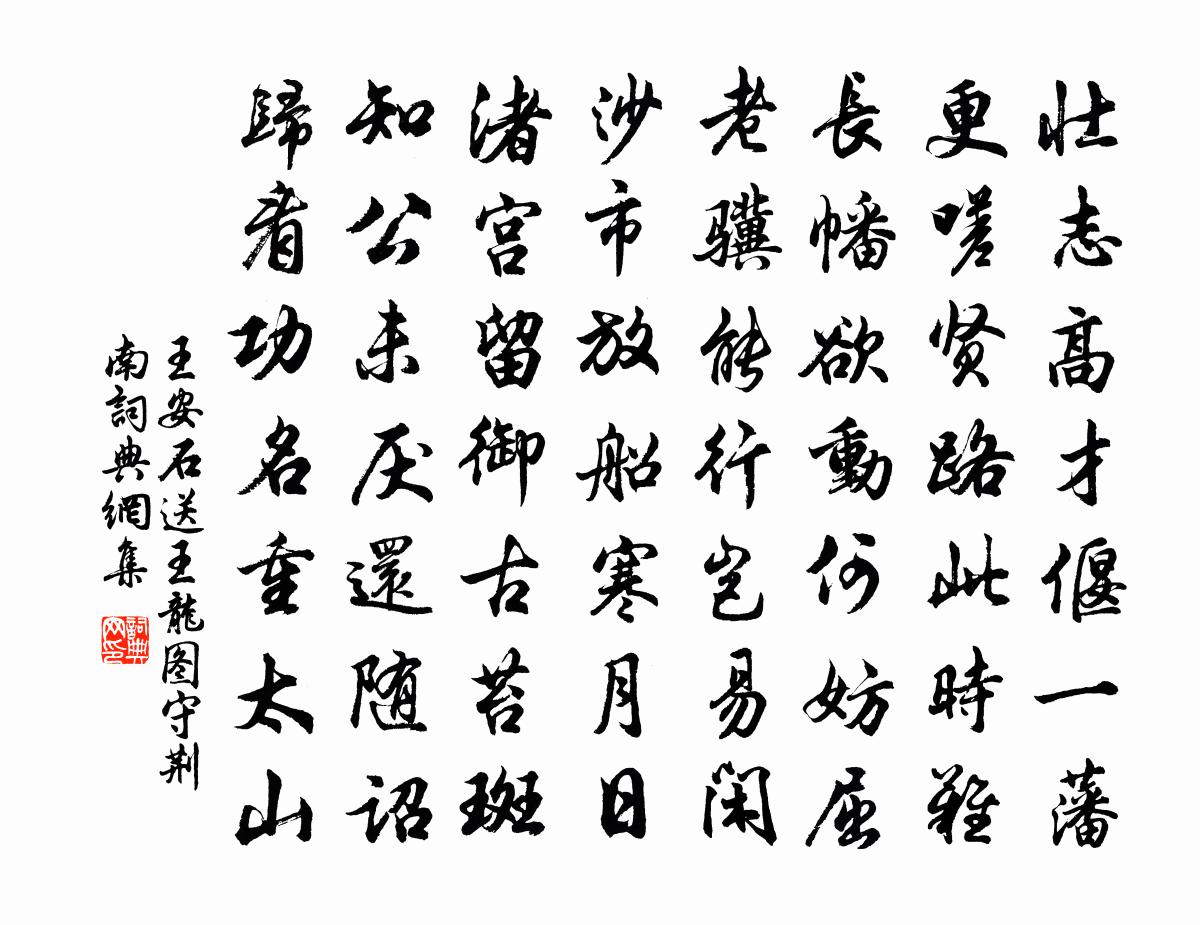 壮志高才偃一藩
更嗟贤路此時難
長幡欲動何妨屈
老骥能行岂易閑
沙市放船寒月日
渚宫留御古苔斑
知公未厌還随詔
歸看功名重太山
王安石送王龍图守荆
南詞典網集
詞典
网印